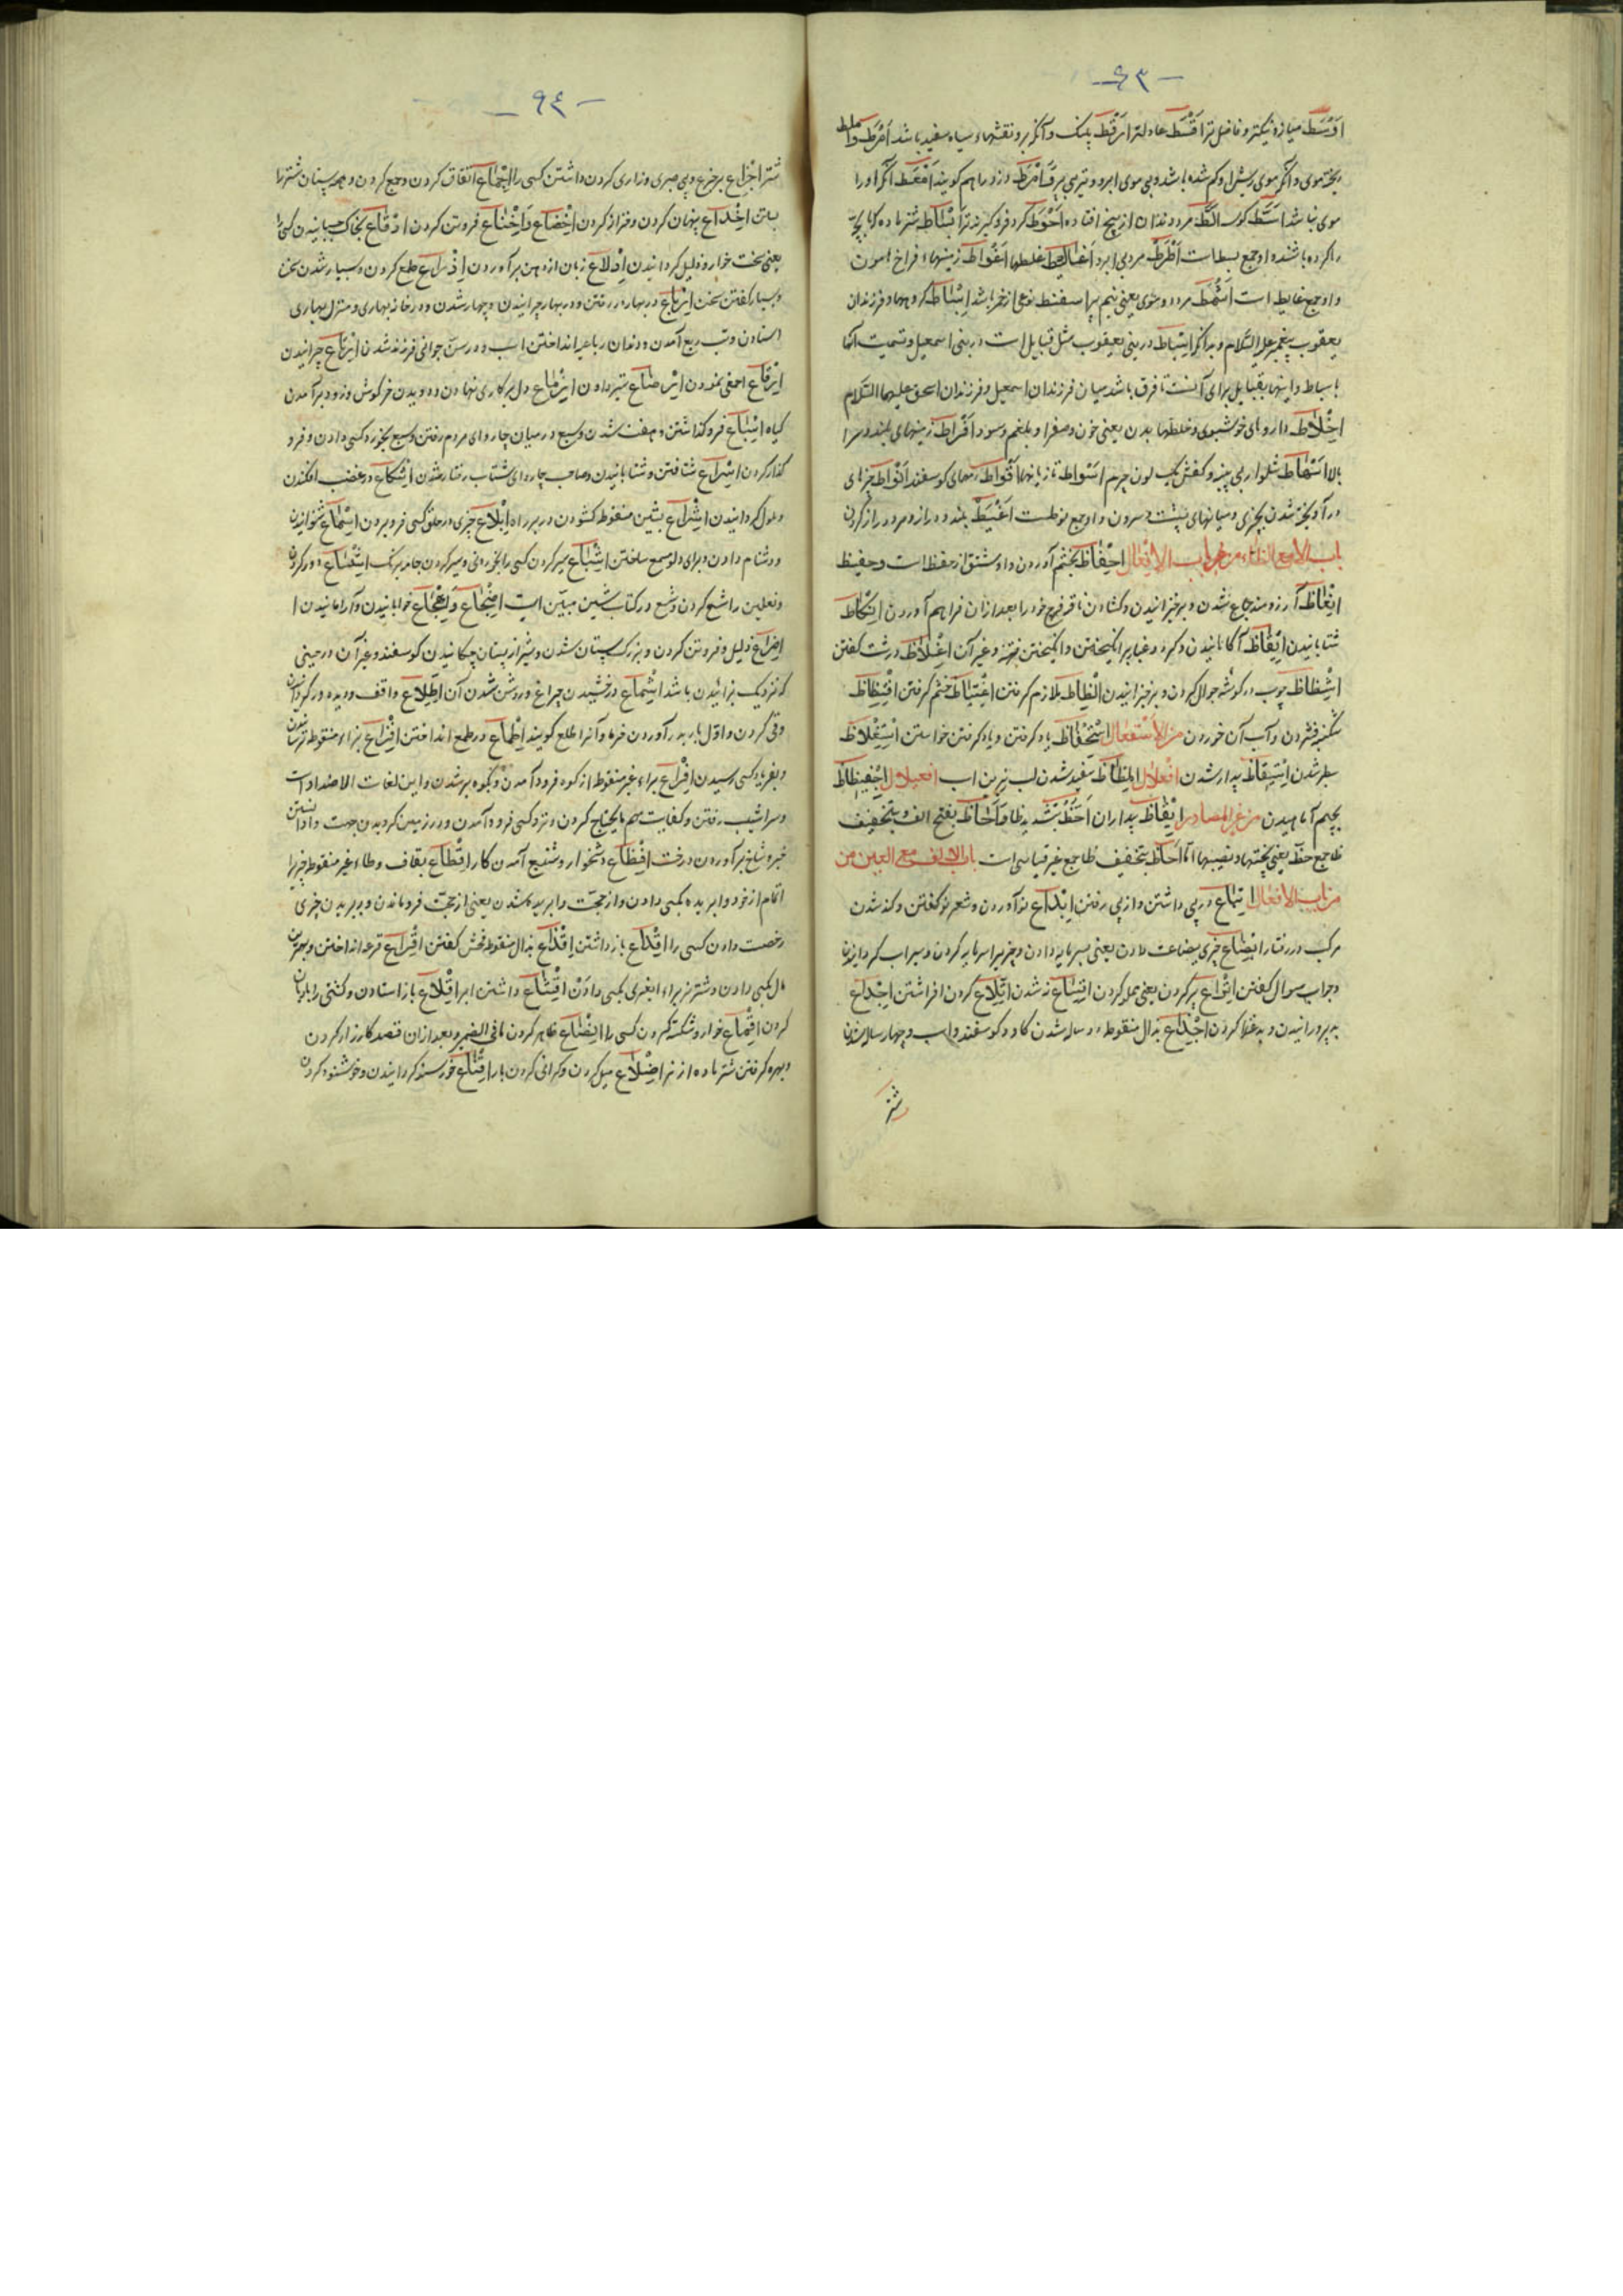 - ۹۳ -
اَوْسَط میانه و نیکتر و فاضل تر اَقْسَط عادلتر اَرْقَط پلنک و آنکه برو نقشهاء سیاه سفید باشد اَمْرَط و اَملط
ریخته موی و آنکه موی ریش او کم شده باشد و بی موی ابرو و تیر بی پر
موی نباشد اَسَطّ کوسه اَلَطّ مرد دندان از بیخ افتاده اَحْوَط کرد فرو کیرنده تر اَبْسَاط شتر ماده که با بچه
رها کرده باشند و او جمع بسط است اَطْرَط مرد بی ابرو اَغَالِیط غلطها اَغْوَاط زمینهاء فراخ هامون
و او جمع غایط است اَشْمَط مرد دو موی یعنی نیم پیر اسفنط نوعی از خمر باشد اَسْبَاط کروهها و فرزندان
یعقوب پیغمبر علیه السّلام و بدانکه اسباط در بنی یعقوب مثل قبایل است در بنی اسمعیل و تسمیت آنها
باسباط و اینها بقبایل برای آنست تا فرق باشد میان فرزندان اسمعیل و فرزندان اسحق علیهما السّلام
اَخْلَاط داروهای خوشبوی و خلطهاء بدن یعنی خون و صفرا و بلغم و سودا اَفْرَاط زمینهای بلند و سرا
بالا اَسْمَاط شلوار بی پنبه و کفش یک لون چرم اَسْوَاط تازیانها اَقْوَاط رمهای کوسفند اَنْوَاط چیزهای
در آویخته شدن بچیزی و میانهای پشت و سرون و او جمع نوطست اَعْیَط بلند و دراز و مرد دراز کردن
باب الالف مع الظاء من باب الافعال اِحْفَاظ بخشم آوردن و او مشتق از حفظ است و حفیظ
اِنْعَاظ آرزومند جماع شدن و برخیزانیدن و کشادن ناقه فرج خود را بعد از ان فراهم آوردن اِنْکَاظ
شتابانیدن اِیْقَاظ آکاهانیدن و کرد و غبار برانکیختن و انکیختن فتنه و غیر آن اِغْلَاظ درشت کفتن
اِشْظَاظ چوب در کوشه جوال کردن و برخیزانیدن اِلْظَاظ ملازم کرفتن اِغْتِیَاظ خشم کرفتن اِفْتِظَاظ
شکنبه فشردن و آب آن خوردن من الاستفعال اِسْتِحْفَاظ یاد کرفتن و یاد کرفتن خواستن اِسْتِغْلَاظ
سطبر شدن اِسْتِیْقَاظ بیدار شدن افعلال اِلْمِظَاظ سفید شدن لب زیرین اسب افعیلال اِجْفِیظَاظ
بچهم آماهیدن من غیر المصادر اَیْقَاظ بیداران اَحَظّ بتشدید ظا و اَحَاظ بفتح الف و بتخفیف
ظا جمع حظّ یعنی بختها و نصیبها امّا اَحَاظ بتخفیف ظا جمع غیر قیاسی است باب الالف مع العین من
من باب الافعال اِتْبَاع در پی داشتن و از پی رفتن اِبْدَاع نو آوردن و شعر نو کفتن و کند شدن
مرکب در رفتار اِبْضَاع چیزی ببضاعت دادن یعنی بسرمایه دادن و چیزی را سرمایه کردن و سیراب کردانیدن
و جواب سوال کفتن اِتْرَاع پر کردن یعنی مملو کردن اِتْسَاع نه شدن اِتْلَاع کردن افراشتن اِجْدَاع
بد پرورانیدن و بد غذا کردن اِجْذَاع بذال منقوطه دو ساله شدن کاو و کوسفند و اسب و چهار ساله شدن
شتر
- ۹٤ -
شتر اِجْزَاع بر جزع و بی صبری و زاری کردن داشتن کسی را اِجْمَاع اتّفاق کردن و جمع کردن و همه پستان شتر را
بستن اِخْدَاع پنهان کردن و فراز کردن اِخْضَاع و اِخْنَاع فروتن کردن اِدْقَاع بخاک چسبانیدن کسی را
یعنی سخت خوار و ذلیل کردانیدن اِدْلَاع زبان از دهن برآوردن اِذْرَاع طمع کردن و بسیار شدن سخن
و بسیار کفتن سخن اِرْبَاع در بهار در رفتن و در بهار چرانیدن و چهار شدن و در خانه بهاری و منزل بهاری
استادن و تب ربع آمدن و دندان رباعیه انداختن اسب و در سنّ جوانی فرزند شدن اِرْتَاع چرانیدن
اِرْقَاع احمقی نمودن اِرْضَاع شیر دادن اِزْمَاع دل بر کاری نهادن و دویدن خرکوش و زود برآمدن
کیاه اِسْبَاع فرو کذاشتن و هفت شدن و سبع در میان چاروای مردم رفتن و سبع بخورد کسی دادن و فرو
کذار کردن اِسْرَاع شتافتن و شتابانیدن و صاحب چاروای شتاب رفتار شدن اِشْکَاع در غضب افکندن
و ملول کردانیدن اِشْرَاع بشین منقوطه کشودن در بر راه اِبْلَاع چیزی در حلق کسی فرو بردن اِسْمَاع شنوانیدن
و دشنام دادن و برای دلو مسمع ساختن اِشْبَاع سیر کردن کسی را بخوردنی و سیر کردن جامه برنک
و نعلین را شسع کردن و شسع در کتاب شین مبیّن است اِضْجَاع و اِهْجَاع خوابانیدن و آرامانیدن
اِضْرَاع ذلیل و فروتن کردن و بزرک پستان شدن و شیر از پستان چکانیدن کوسفند و غیر آن در حینی
که نزدیک بزائیدن باشد اِشْمَاع درخشیدن چراغ و روشن شدن آن اِطْلَاع واقف و دیده ور کردانیدن
وقی کردن و اوّل بار ببر آوردن خرما و آنرا طلع کویند اِطْمَاع در طمع انداختن اِفْزَاع بزاء منقوطه ترسانیدن
و بفریاد کسی رسیدن اِفْرَاع براء غیر منقوطه از کوه فرود آمدن و بکوه برشدن و این لغات الاضداد است
و سراشیب رفتن و کفایت مهم مایحتاج کردن و نزد کسی فرود آمدن و در زمین کردیدن
و شاخ برآوردن درخت اِفْظَاع دشخوار و شنیع آمدن کار اِقْطَاع بقاف و طاء غیر منقوطه چیزی را
از خود وا بریده بکسی دادن و از حجّت وا بریده شدن یعنی از حجّت فرو ماندن و بریدن چیزی
رخصت دادن کسی را اِقْدَاع باز داشتن اِقْذَاع بذال منقوطه فحش کفتن اِقْرَاع قرعه انداختن و بهترین
مال بکسی دادن و شتر نر براء ابغری بکسی دادن اِقْشَاع داشتن ابر اِقْلَاع باز استادن و کشتی را بادبان
کردن اِقْمَاع خوار و شکسته کردن کسی را اِیْضَاع ظاهر کردن ما فی الضمیر و بعد از ان قصد کارزار کردن
و بهره کرفتن شتر ماده از نر اِضْلَاع میل کردن و کرانی کردن بار اِقْنَاع خورسند کردانیدن و خوشنود کردن